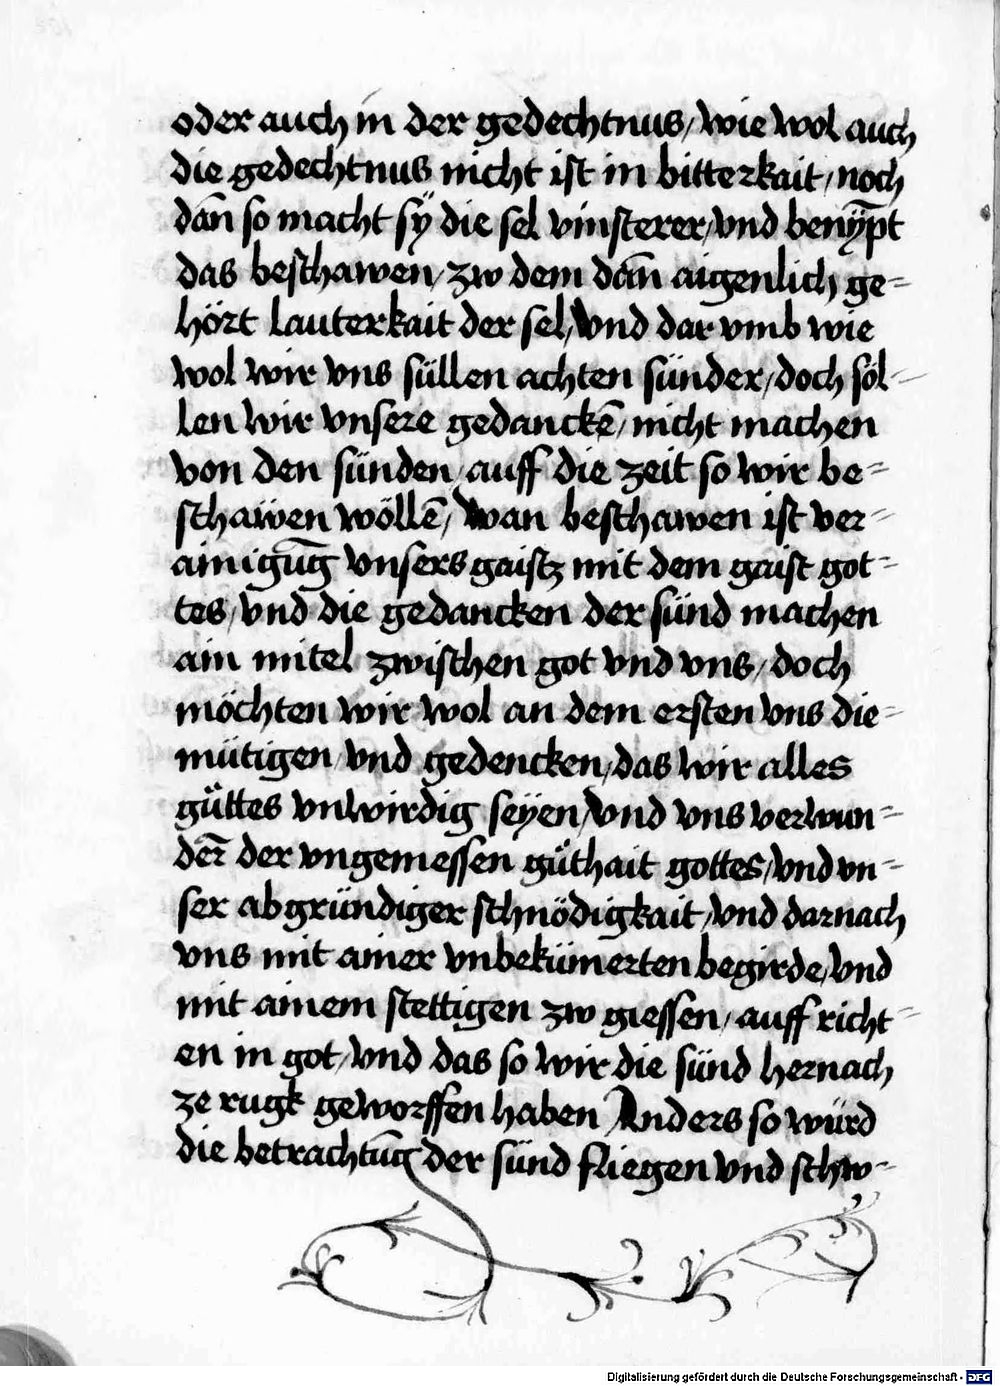 oder auch in der gedechtnus / wie wol auch
die gedechtnus nicht ist in bitterkait / noch
dañ so macht sÿ die sel vinsterer / vnd benÿp̄t
das beschawen / zw dem dañ aigenlich ge=
hört lauterkait der sel / vnd dar vmb wie
wol wir vns süllen achten sünder / doch söl=
len wir vnsere gedanckē / nicht machen
von den sünden / auff die zeit so wir be=
schaẅen wöllē / wan beschawen ist ver=
ainigūg vnsers gaistz mit dem gaist got=
tes / vnd die gedancken der sünd machen
ain mitel zwischen got vnd vns / doch
möchten wir wol an dem ersten vns die=
mütigen / vnd gedencken / das wir alles
güttes vnwirdig seÿen / vnd vns verwun=
der̄ der vngemessen güthait gottes / vnd vn=
ser abgründiger schnödigkait / vnd darnach
vns mit ainer vnbekümerten begirde / vnd
mit ainem stettigen zw giessen / auff richt=
en in got / vnd das so wir die sünd hernach
ze rugk geworffen haben Anders so würd
die betrachtūg der sünd fliegen vnd schw=
Digitalisierung gefördert durch die Deutsche Forschungsgemeinschaft - DFG